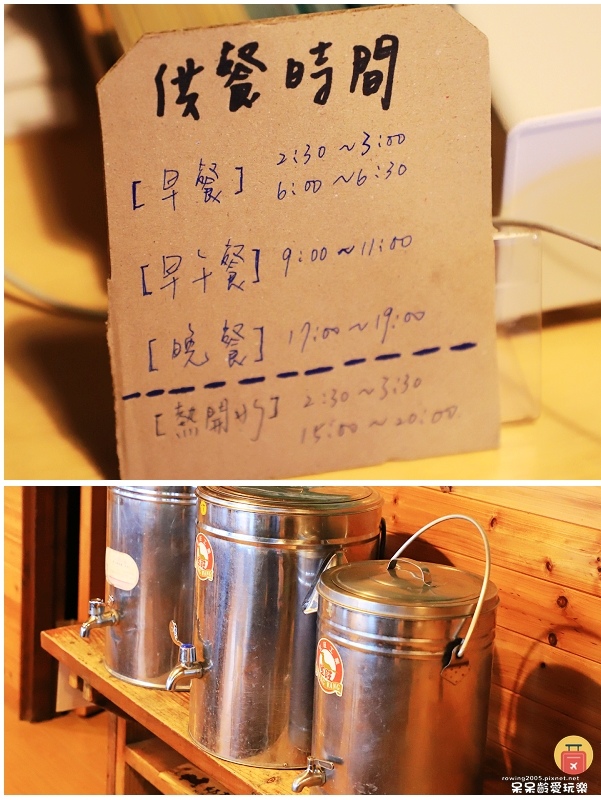 供餐時間
[早餐] 2:30~3:00
6:00~6:30
[早午餐] 9:00~11:00
[晚餐] 17:00~19:00
[熱開水] 2:30~3:30
15:00~20:00
rowing2005.pixnet.net
呆呆齡愛玩樂